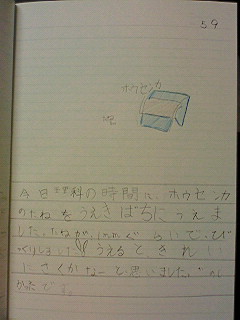 59
ホウセンカ
今日理科の時間に、ホウセンカ
のたねをうえきばちにうえま
した。たねが、1mmぐらいで、び
っくりしました。うえるとき、きれい
にさくかなーと思いました。
かったです。